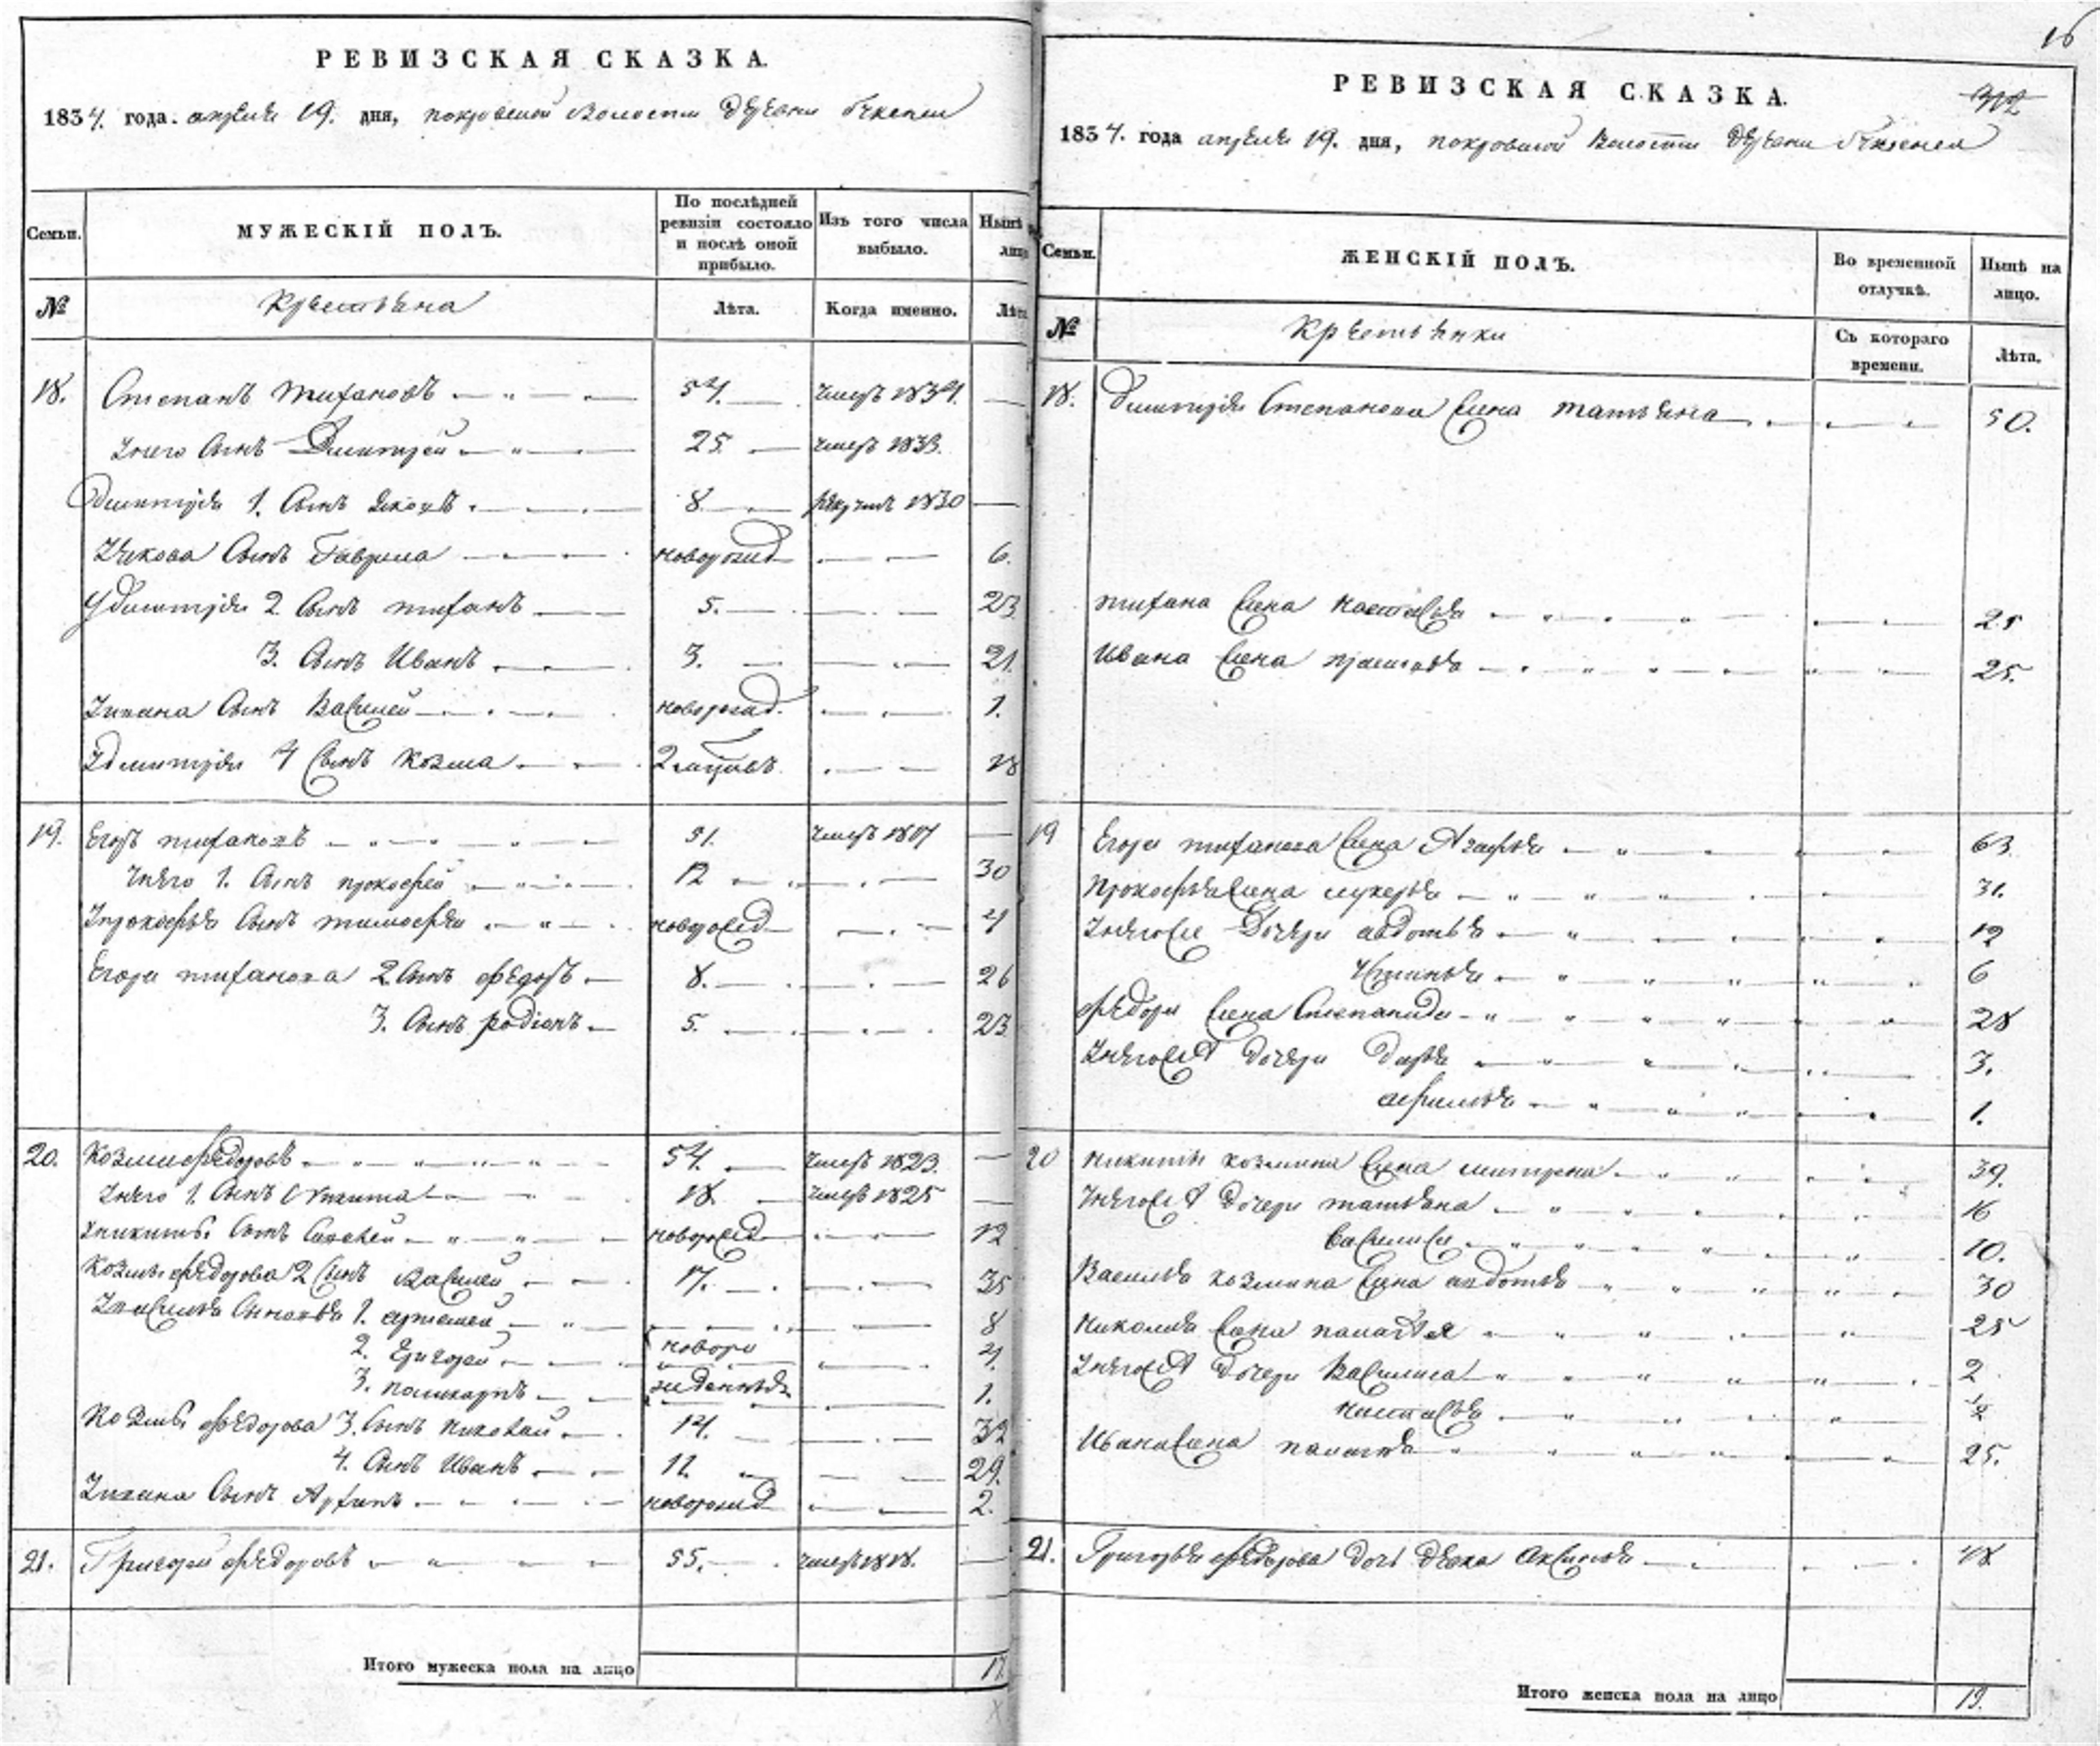 16
РЕВИЗСКАЯ СКАЗКА.
1834. года. апреля 19. дня, покровской Волости Деревни
Семьи.
МУЖЕСКІЙ ПОЛЪ.
По послѣдней ревизіи состояло и послѣ оной прибыло.
Изъ того числа выбыло.
Нынѣ на лицо
№
Крестьяна
Лѣта.
Когда именно.
Лѣта
18. Степанъ Тифановъ 54. умеръ 1834.
Унего Сынъ Дмитрей 25. умеръ 1833.
Дмитрія 1. Сынъ Яковъ 8. 1830
УЯкова Сынъ Гаврила новорожд 6.
УДмитрія 2 Сынъ тифанъ 5. 23
3. Сынъ Иванъ 3. 21.
Уивана Сынъ Василей новорожд. 1.
Удмитрія 4 Сынъ Козма 2 18
19. Егоръ тифановъ 51. умеръ
Унего 1. Сынъ прокофей 12 30
Упрокофья Сынъ тимофей новорожд 4
Егора тифанова 2 Сынъ федоръ 8. 26
3. Сынъ родіонъ 5. 23
20. Козма федоровъ 54. умеръ 1823.
Унего 1. Сынъ Никита 18. умеръ 1825
Уникиты Сынъ новорожд 12
Козмы федорова 2 Сынъ Василей 17. 35
Увасилья Сыновья 1. артемей 8
2. Григорей новоро 4.
3. поликарпъ жденныя 1.
Козмы федорова 3. Сынъ Николай 14. 32
4. Сынъ Иванъ 11. 29.
Уивана Сынъ Архипъ новорожд 2.
21. Григорей федоровъ 55. умеръ 1818.
Итого мужеска пола на лицо 17.
РЕВИЗСКАЯ СКАЗКА.
1834. года апреля 19. дня, покровской Волости Деревни
Семьи.
ЖЕНСКІЙ ПОЛЪ.
Во временной отлучкѣ.
Нынѣ на лицо.
№
Крестьянки
Съ котораго времени.
Лѣта.
18. Дмитрія Степанова жена татьяна 50.
тифана жена настасья 25
Ивана жена 25.
19 Егора тифанова жена Агафья 63.
Прокофья жена лукерья 31.
Унегоже Дочери авдотья 12
6
федора жена Степанида 28
Унегожъ дочери дарья 3.
афимья 1.
20 Никиты козмина жена матрена 39.
Унегожъ дочери татьяна 16
василиса 10.
Василья козмина жена авдотья 30
Николая жена палагея 25
Унегожъ дочери Василиса 2
настасья ½
Ивана жена палагея 25.
21. Григорья федорова дочь девка Аксинья 48
Итого женска пола на лицо 19.